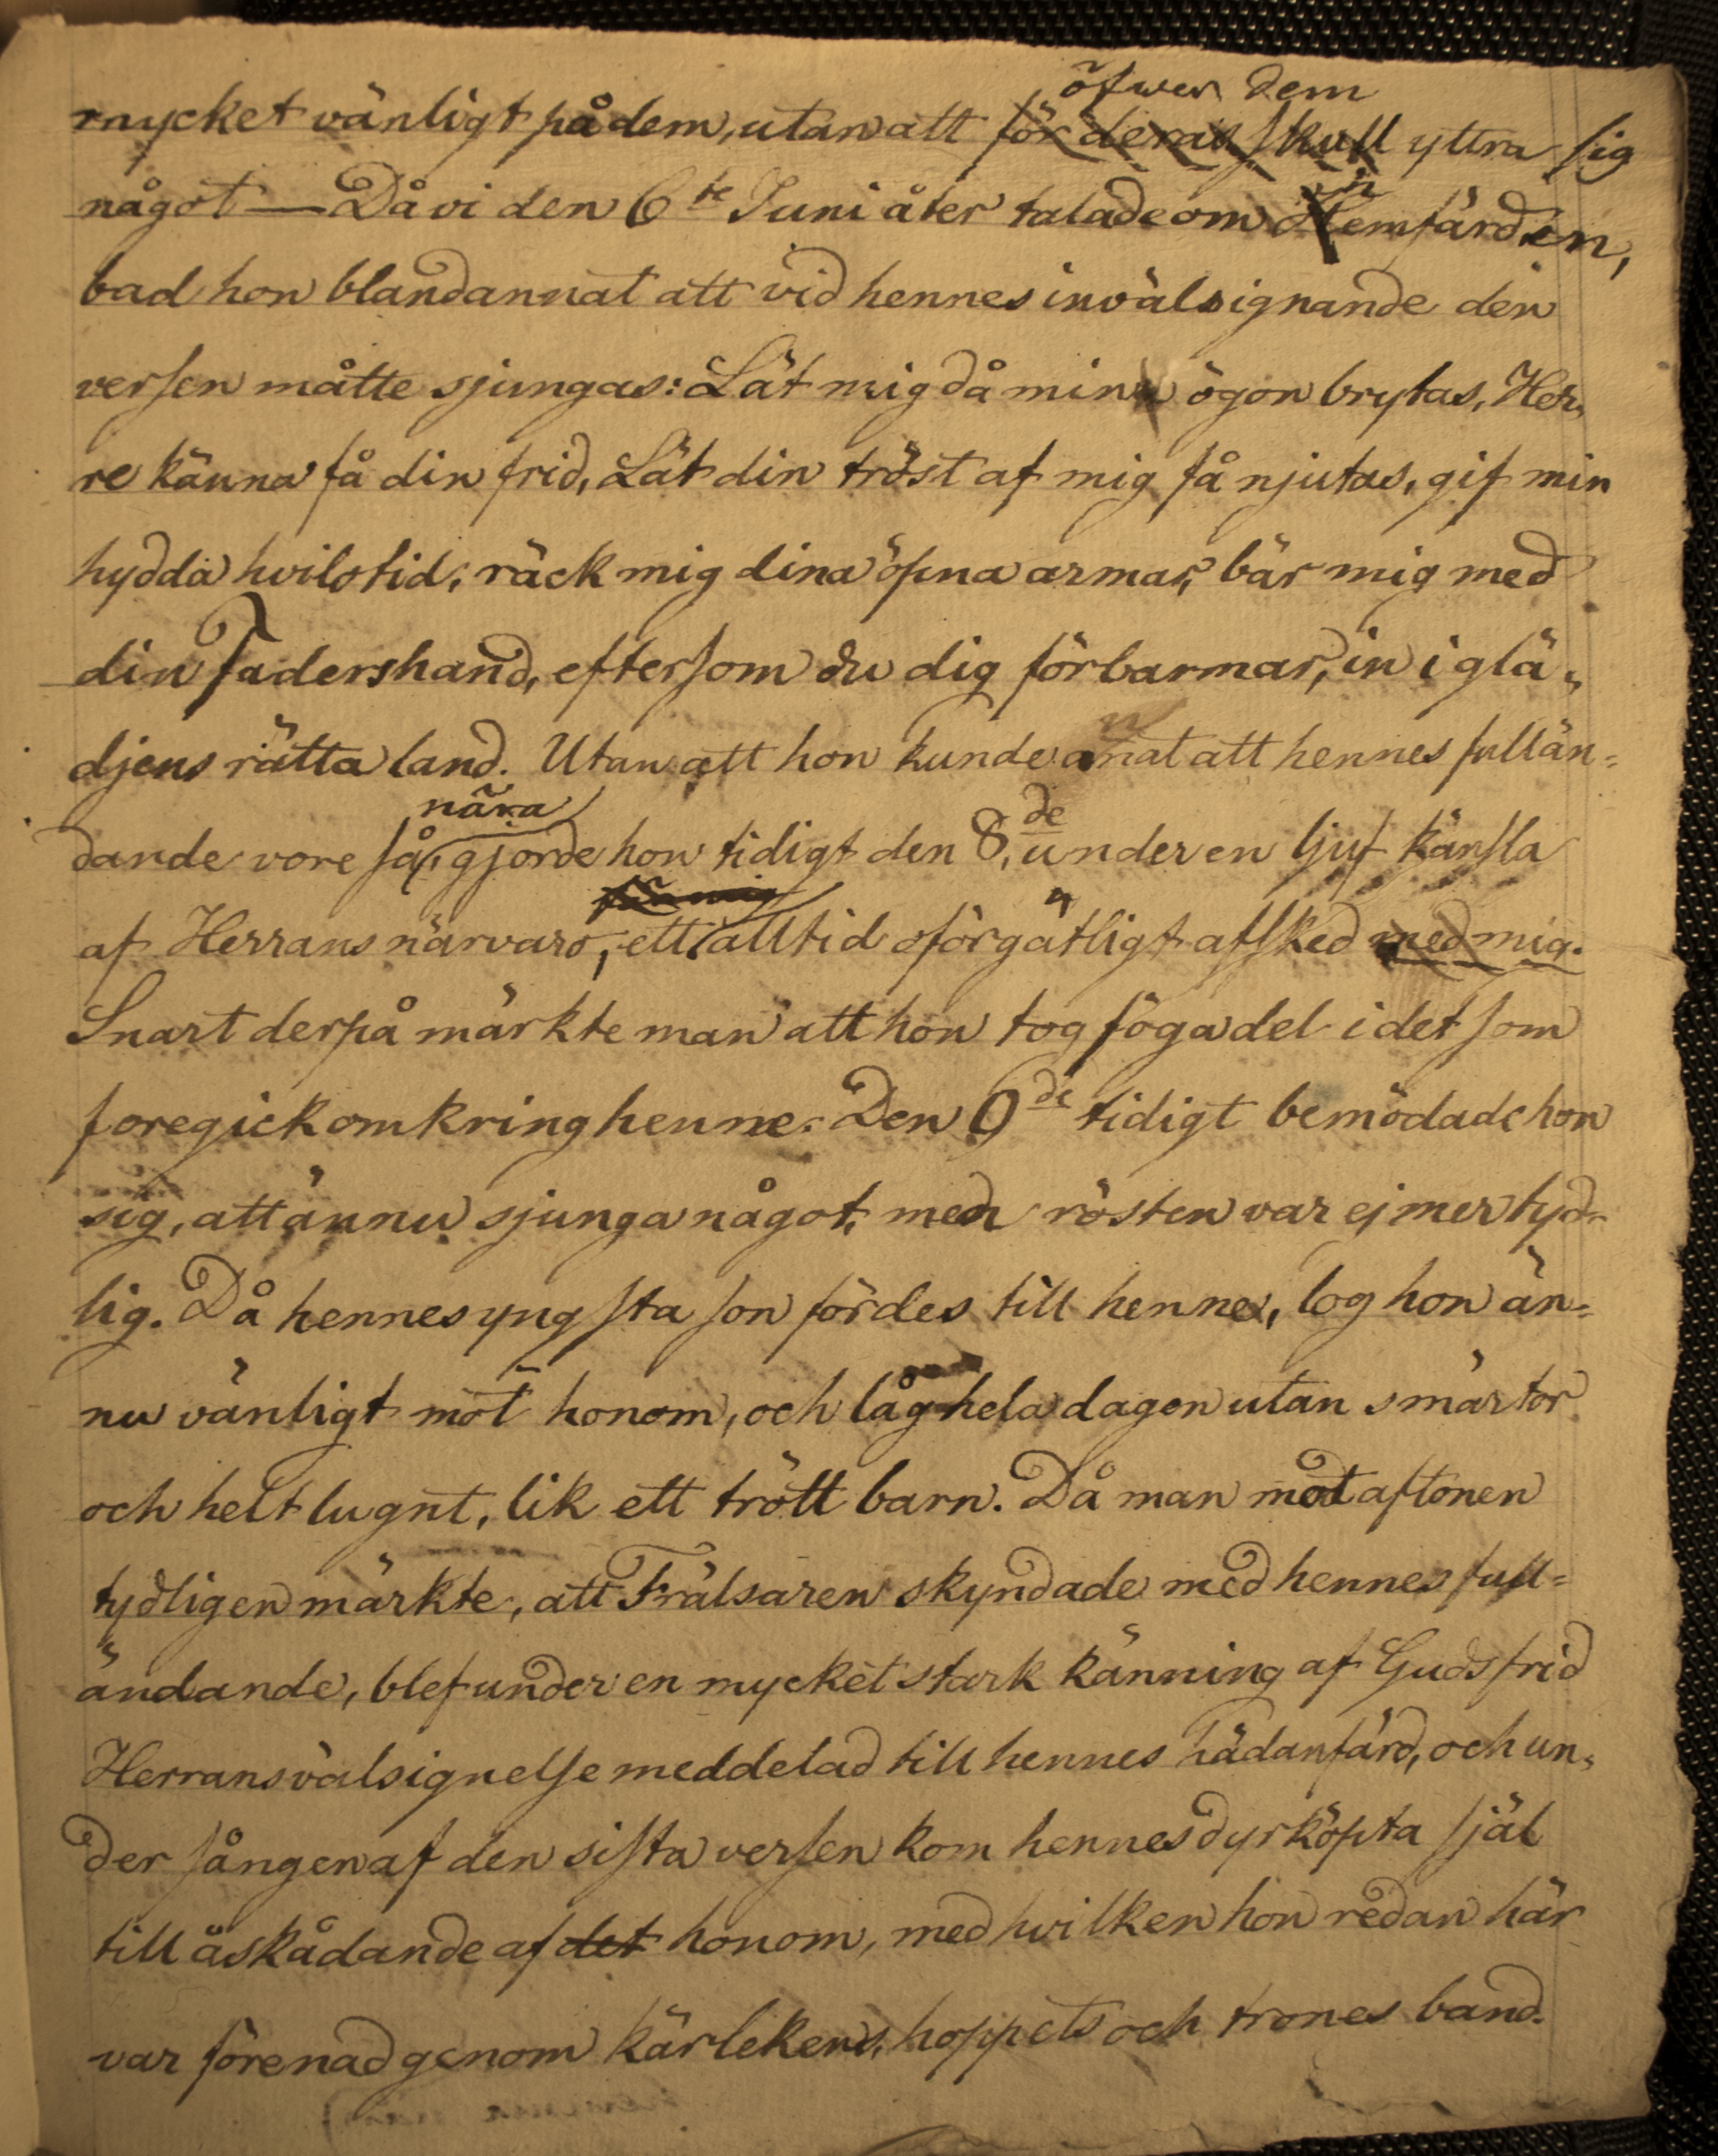 öfwer dem
mycket vänligt på dem, utan att för deras skull yttra sig
något — Då vi den 6te Juni åter talade om Hemfärden,
bad hon bland annat att vid hennes invälsignande den
versen måtte sjungas: Låt mig då mina ögon brytas, Her„
re känna få din frid, Låt din tröst af mig få njutas, gif min
hydda hvilotid; räck mig dina öpna armar, bär mig med
din Fadershand, eftersom du dig förbarmar, in i glä„
djens rätta land. Utan att hon kunde anat att hennes fullän=
nära
dande vore så, gjorde hon tidigt den 8de under en ljuf känsla
för mig
af Herrans närvaro, ett alltid oförgätligt afsked med mig.
Snart derpå märkte man att hon tog föga del i det som
foregick omkring henne. Den 9de tidigt bemödade hon
sig, att ännu sjunga något, men rösten var ej mer tyd=
lig. Då hennes yngsta son fördes till henne, log hon än=
nu vänligt mot honom, och låg hela dagen utan smärtor
och helt lugnt, lik ett trött barn. Då man mot aftonen
tydligen märkte, att Frälsaren skyndade med hennes full=
ändande, blef under en mycket stark känning af Guds frid
Herrans välsignelse meddelad till hennes hädanfärd, och un„
der sången af den sista versen kom hennes dyrköpta själ
till åskådande af det honom, med hvilken hon redan här
var förenad genom kärlekens, hoppets och trones band.